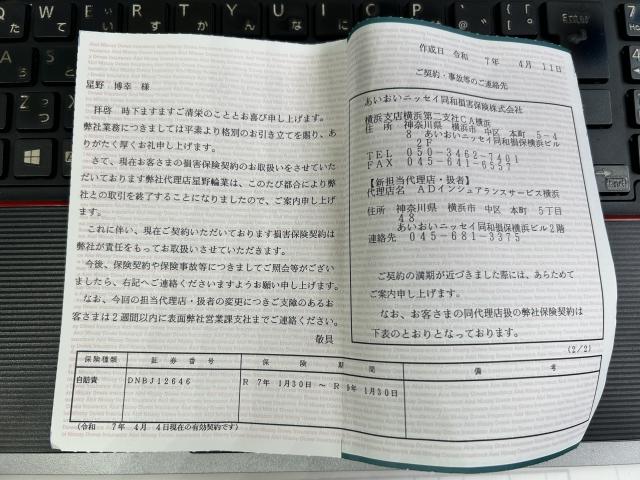 星野 博幸 様
拝啓 時下ますますご清栄のこととお喜び申し上げます。
弊社業務につきましては平素より格別のお引き立てを賜り、あ
りがたく厚くお礼申し上げます。
さて、現在お客さまの損害保険契約のお取扱いをさせていた
だいております弊社代理店星野輪業は、このたび都合により弊
社との取引を終了することになりましたので、ご案内申し上げ
ます。
これに伴い、現在ご契約いただいております損害保険契約は
弊社が責任をもってお取扱いさせていただきます。
今後、保険契約や保険事故等につきましてご照会等がござい
ましたら、右記へご連絡くださいますようお願い申し上げます。
なお、今回の担当代理店・扱者の変更につきご支障のあるお
客さまは2週間以内に表面弊社営業課支社までご連絡ください。
敬具
作成日 令和 7年 4月 11日
ご契約・事故等のご連絡先
あいおいニッセイ同和損害保険株式会社
横浜支店横浜第二支社CA横浜
住 所 神奈川県 横浜市 中区 本町 5-4
8 あいおいニッセイ同和損保横浜ビル
2F
TEL 050-3462-7401
FAX 045-641-6557
【新担当代理店・扱者】
代理店名 ADインシュアランスサービス横浜
住所 神奈川県 横浜市 中区 本町 5丁目
48
あいおいニッセイ同和損保横浜ビル2階
連絡先 045-681-3375
ご契約の満期が近づきました際には、あらためて
ご案内申し上げます。
なお、お客さまの同代理店扱の弊社保険契約は
下表のとおりとなっております。
(2/2)
保険種類 証券番号 保険期間 備考
自賠責 DNBJ12646 R 7年 1月30日 ～ R 9年 1月30日
(令和 7年 4月 4日現在の有効契約です)